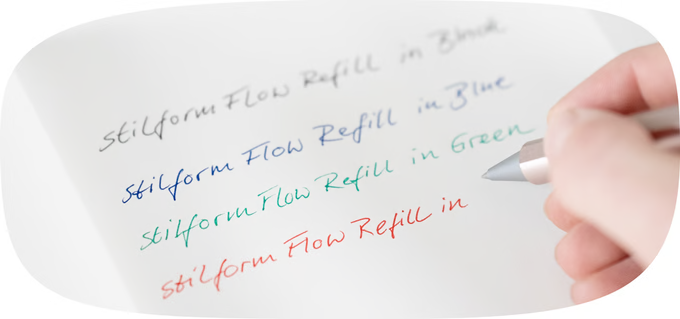 stilform Flow Refill in Black
stilform Flow Refill in Blue
stilform Flow Refill in Green
stilform Flow Refill in